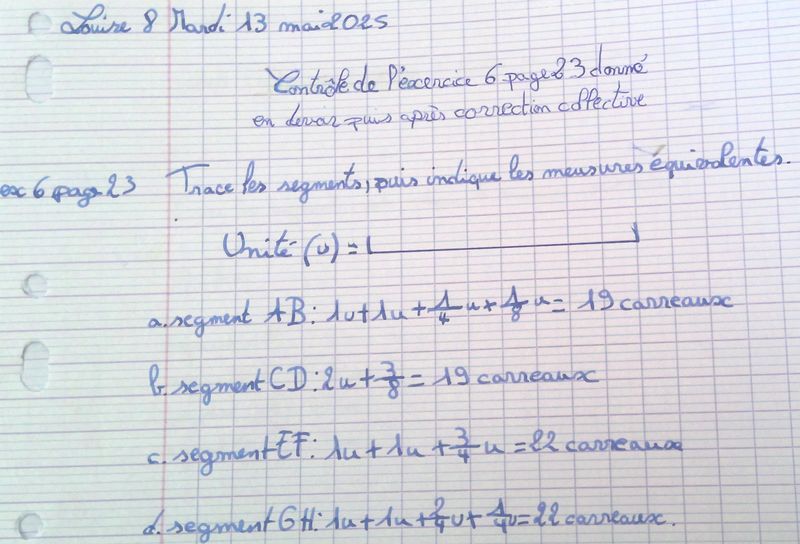 Louise 8 Mardi 13 mai 2025
Contrôle de l'exercice 6 page 23 donné
en devoir puis après correction collective
ex 6 page 23 Trace les segments, puis indique les mesures équivalentes.
Unité (u) =
a. segment AB : 1u + 1u + 1/4 u + 1/8 u = 19 carreaux
b. segment CD : 2u + 3/8 = 19 carreaux
c. segment EF : 1u + 1u + 3/4 u = 22 carreaux
d. segment GH : 1u + 1u + 2/4 u + 1/4 u = 22 carreaux.